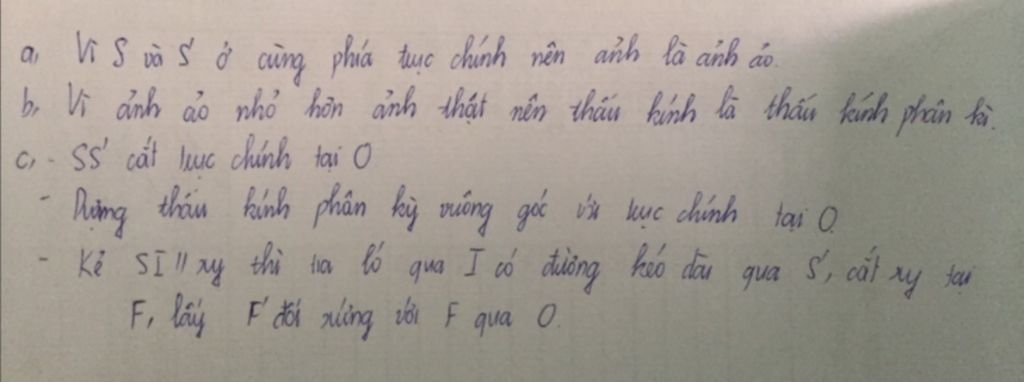 a, Vì S và S' ở cùng phía trục chính nên ảnh là ảnh ảo.
b, Vì ảnh ảo nhỏ hơn ảnh thật nên thấu kính là thấu kính phân kì.
c, - SS' cắt trục chính tại O
- Dựng thấu kính phân kỳ vuông góc với trục chính tại O.
- Kẻ SI // xy thì tia ló qua I có đường kéo dài qua S', cắt xy tại
F, lấy F' đối xứng với F qua O.